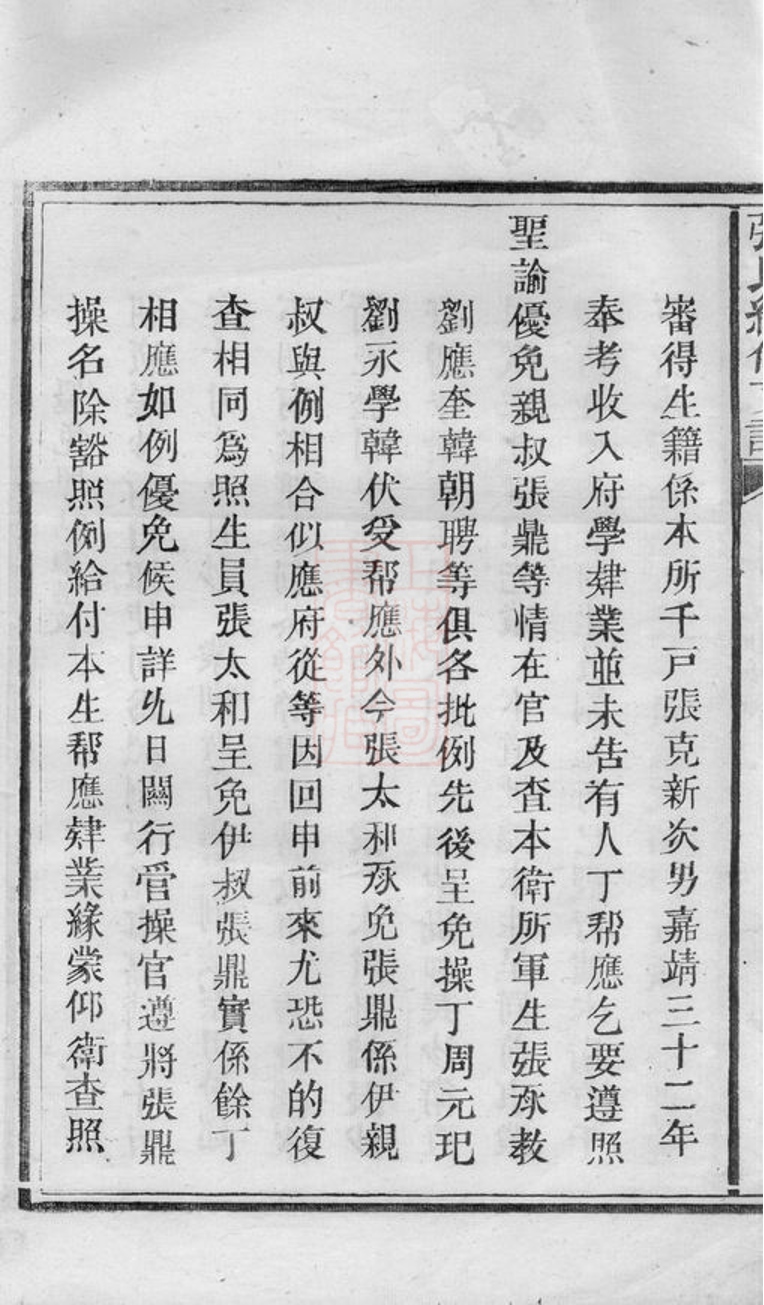 審得生籍係本所千戸張克新次男嘉靖三十二年
奉考收入府學肄業並未告有人丁帮應乞要遵照
聖諭優免親叔張鼎等情在官及查本衛所軍生張承教
劉應奎韓朝聘等俱各批例先後呈免操丁周元玘
劉永學韓伏受帮應外今張太和承免張鼎係伊親
叔與例相合似應府從等因回申前來尤恐不的復
查相同爲照生員張太和呈免伊叔張鼎實係餘丁
相應如例優免候申詳允日關行管操官遵將張鼎
操名除豁照例給付本生帮應肄業緣蒙仰衛查照